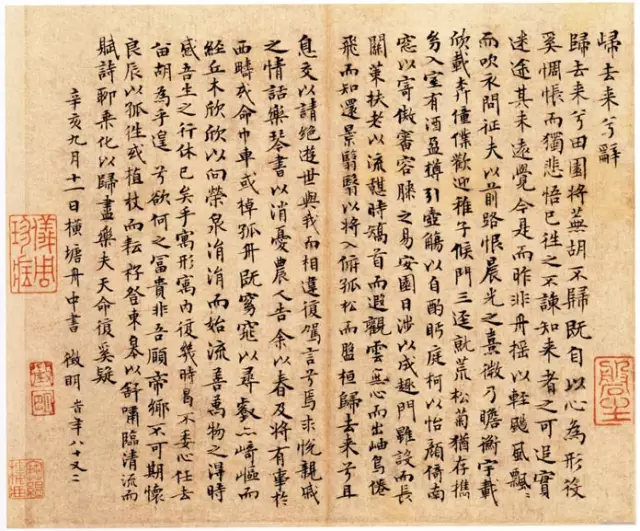 歸去来兮辭
歸去来兮田園将蕪胡不歸既自以心為形役
奚惆悵而獨悲悟已往之不諫知来者之可追實
迷途其未遠覺今是而昨非舟摇以輕颺風飄〻
而吹衣問征夫以前路恨晨光之熹微乃瞻衡宇載
欣載奔僮僕歡迎稚子候門三逕就荒松菊猶存携
幼入室有酒盈樽引壺觴以自酌眄庭柯以怡顔倚南
窓以寄傲審容膝之易安園日涉以成趣門雖設而長
關策扶老以流憇時矯首而遐觀雲無心而出岫鳥倦
飛而知還景翳翳以将入撫孤松而盤桓歸去来兮且
息交以請絶遊世與我而相違復駕言兮焉求悦親戚
之情話樂琴書以消憂農人告余以春及将有事於
西疇或命巾車或棹孤舟既窈窕以尋壑亦崎嶇而
經丘木欣欣以向榮泉涓涓而始流善萬物之得時
感吾生之行休已矣乎寓形寓内復幾時曷不委心任去
留胡為乎遑兮欲何之冨貴非吾願帝鄉不可期懷
良辰以孤往或植杖而耘耔登東皋以舒嘯臨清流而
賦詩聊乘化以歸盡樂夫天命復奚疑
辛亥九月十一日横塘舟中書 徵明 旹年八十又二